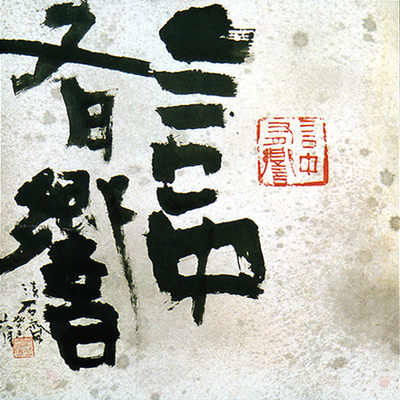 言中
有響
言中
有響